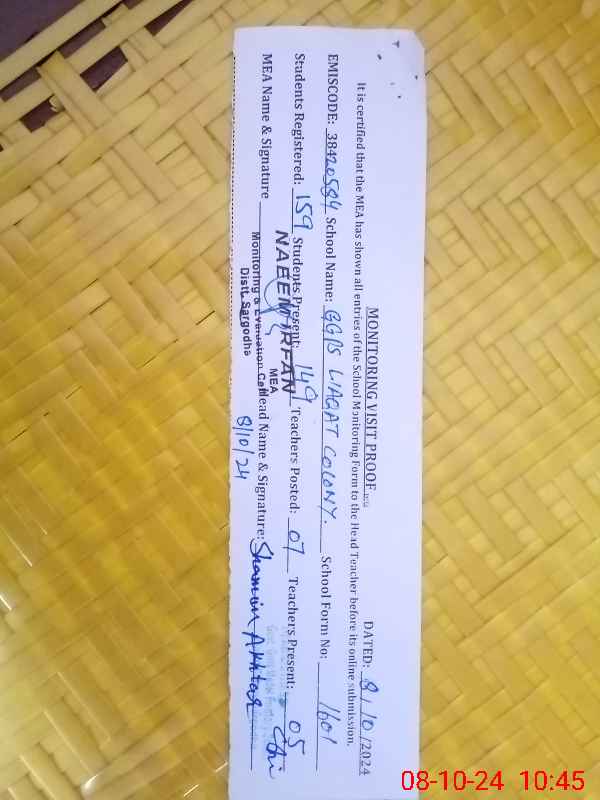 MONITORING VISIT PROOF
DATED: 8/10/2024
It is certified that the MEA has shown all entries of the School Monitoring Form to the Head Teacher before its online submission.
EMISCODE: 38420584 School Name: GGPS LIAQAT COLONY. School Form No: 1601
Students Registered: 159 Students Present: 149 Teachers Posted: 07 Teachers Present: 05
MEA Name & Signature Head Name & Signature: Shamim Akhtar
NAEEM IRFAN
MEA
Monitoring & Evaluation Cell
Distt. Sargodha
8/10/24
08-10-24 10:45